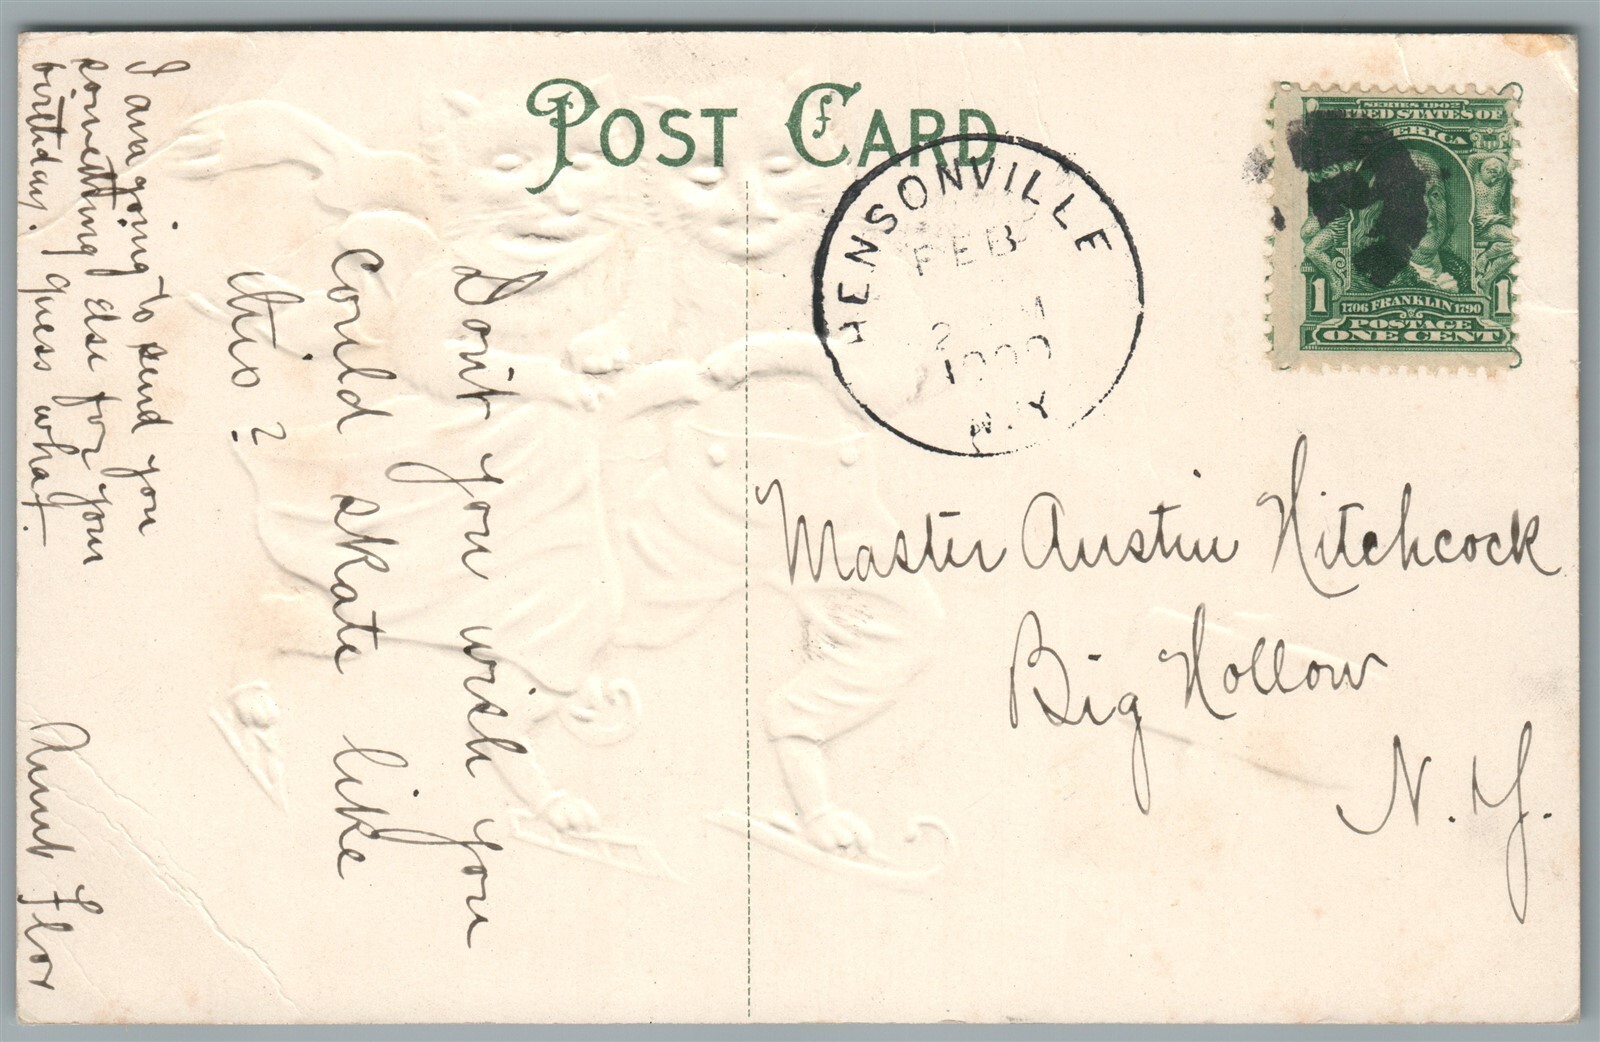 POST CARD
HENSONVILLE
FEB
2 M
1909
N.Y
SERIES 1902
UNITED STATES OF
AMERICA
1 1706 FRANKLIN 1790 1
POSTAGE
ONE CENT
Don't you wish you
could skate like
this?
I am going to send you
something else for your
birthday. Guess what.
Aunt Flor
Master Austin Hitchcock
Big Hollow
N.Y.